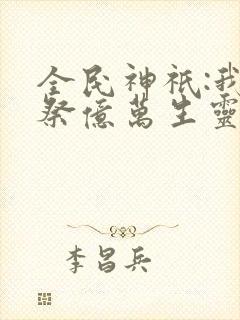 全民神祇:我
祭億萬生靈
李昌兵